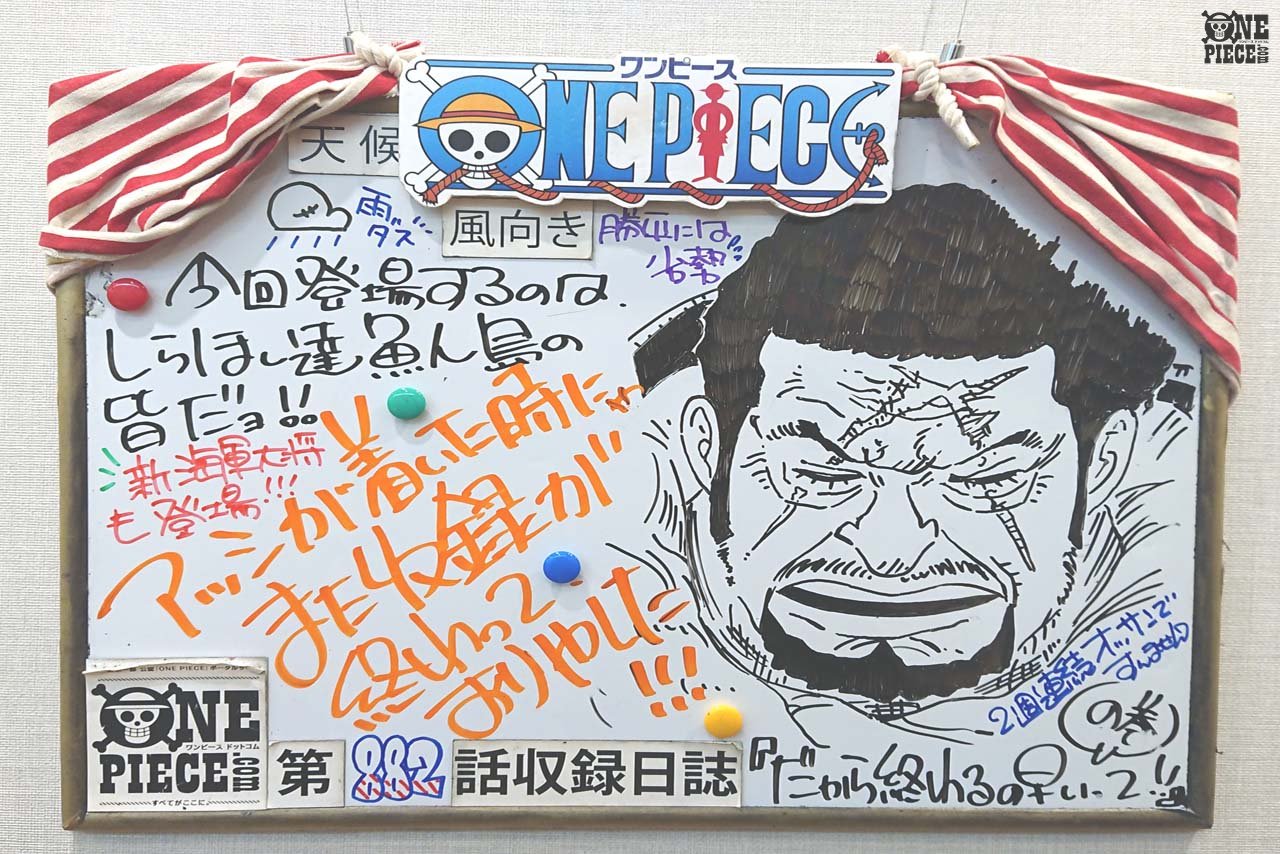 ONE PIECE.COM
ワンピース ドットコム
ワンピース
ONE PIECE
天候
雨
ダス
風向き
勝平には
台勢!!
今回登場するのは、
しらほし達魚人島の
皆だョ!!
新海軍大将
も登場!!!
アッシが着いた時にゃ
また収録が
終わって
おりやした
!!!
2週連続オッサンで
すんません
の巻
『だから終わるの早いって!!』
ONE
ワンピース ドットコム
PIECE.COM
すべてがここに
第882話収録日誌